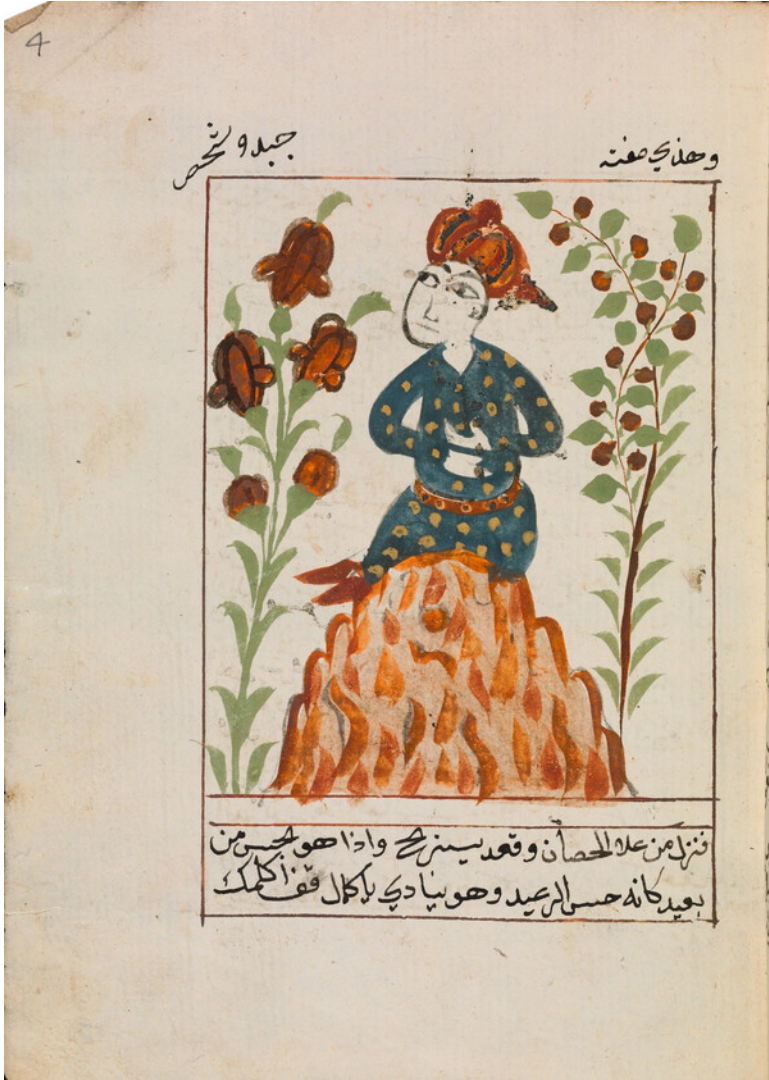 4
وهذي صفته جبل وشخص
فنزل من علا الحصان وقعد يستريح واذا هو بحس من
بعيد كانه حس الرعيد وهو ينادي يا كمال قف اكلمك